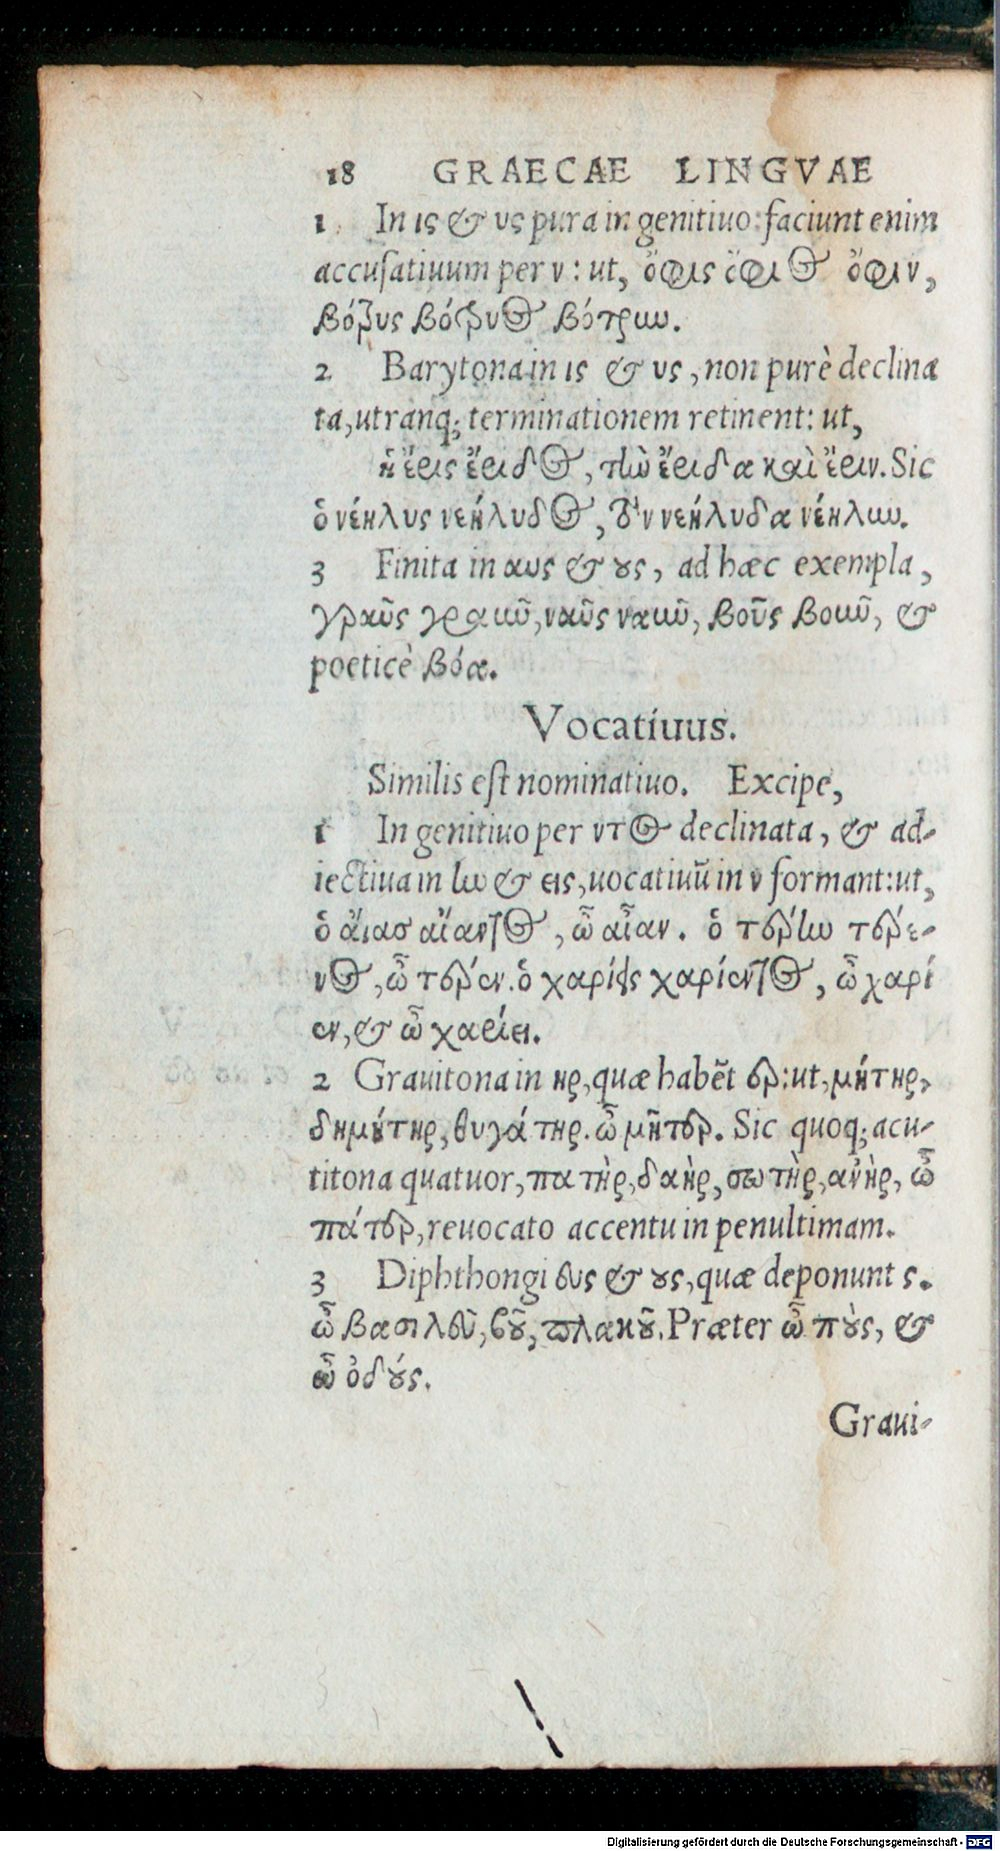 18 GRAECAE LINGVAE
1 In ις & υς pura in genitiuo: faciunt enim
accusatiuum per ν: ut, ὄφις ὄφιος ὄφιν,
βότρυς βότρυος βότρυν.
2 Barytona in ις & υς, non purè declina
ta, utranq; terminationem retinent: ut,
ἡ ἔρις ἔριδος, τὴν ἔριδα καὶ ἔριν. Sic
ὁ νέηλυς νεήλυδος, τὸν νεήλυδα νέηλυν.
3 Finita in αυς & ους, ad hæc exempla,
γραῦς γραῦν, ναῦς ναῦν, βοῦς βοῦν, &
poeticè βόα.
Vocatiuus.
Similis est nominatiuo. Excipe,
1 In genitiuo per ντος declinata, & ad-
iectiua in ην & εις, uocatiuũ in ν formant: ut,
ὁ αἴας αἴαντος, ὦ αἶαν. ὁ τέρην τέρε-
νος, ὦ τέρεν. ὁ χαρίεις χαρίεντος, ὦ χαρί
εν, & ὦ χαρίει.
2 Grauitona in ηρ, quæ habẽt ερ: ut, μήτηρ,
δημήτηρ, θυγάτηρ. ὦ μῆτερ. Sic quoq; acu-
titona quatuor, πατὴρ, δαὴρ, σωτὴρ, ανὴρ, ὦ
πάτερ, reuocato accentu in penultimam.
3 Diphthongi ευς & ους, quæ deponunt ς.
ὦ βασιλεῦ, βοῦ, πλακοῦ. Præter ὦ ποὺς, &
ὦ ὀδούς.
Graui-
Digitalisierung gefördert durch die Deutsche Forschungsgemeinschaft - DFG